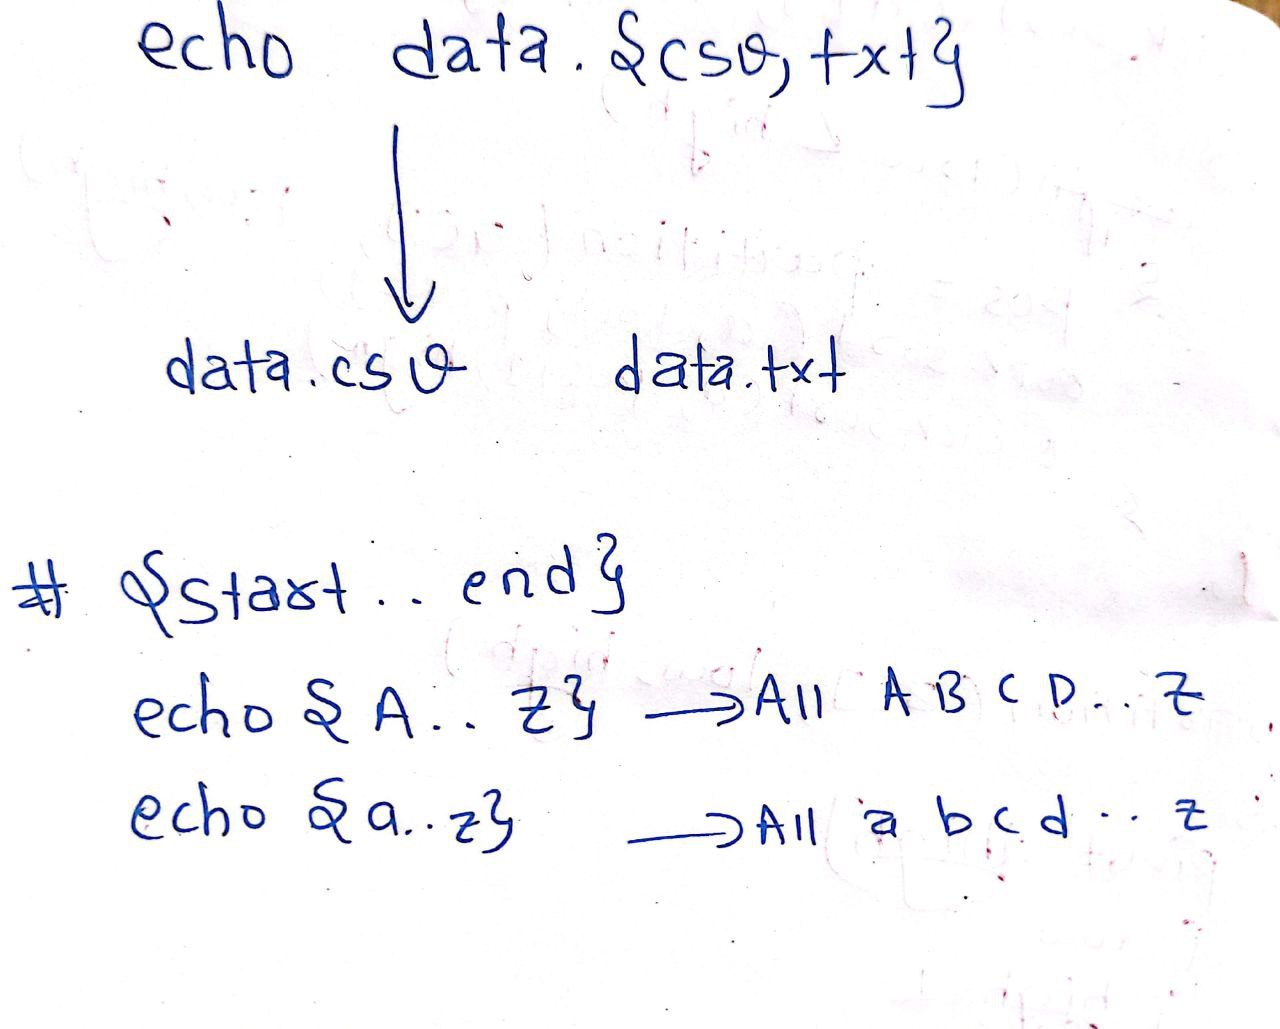 echo data.{csv,txt}
data.csv data.txt
# {start..end}
echo {A..Z} → All A B C D.. Z
echo {a..z} → All a b c d .. z